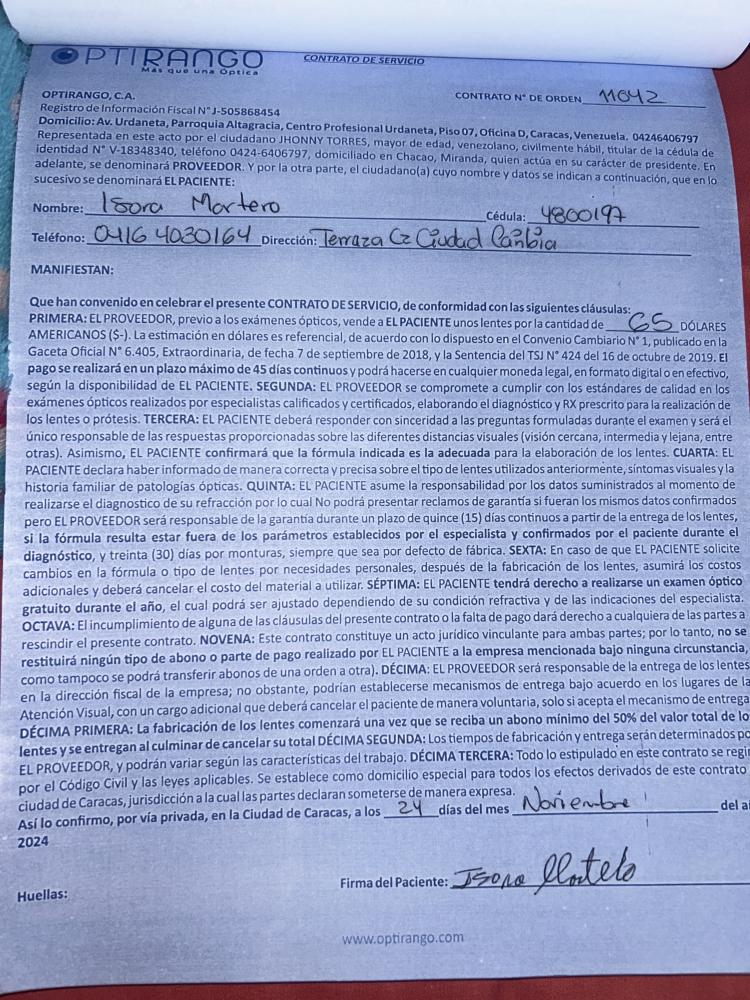 OPTIRANGO
Más que una Óptica
CONTRATO DE SERVICIO
OPTIRANGO, C.A.
CONTRATO N° DE ORDEN 11042
Registro de Información Fiscal N° J-505868454
Domicilio: Av. Urdaneta, Parroquia Altagracia, Centro Profesional Urdaneta, Piso 07, Oficina D, Caracas, Venezuela. 04246406797
Representada en este acto por el ciudadano JHONNY TORRES, mayor de edad, venezolano, civilmente hábil, titular de la cédula de
identidad N° V-18348340, teléfono 0424-6406797, domiciliado en Chacao, Miranda, quien actúa en su carácter de presidente. En
adelante, se denominará PROVEEDOR. Y por la otra parte, el ciudadano(a) cuyo nombre y datos se indican a continuación, que en lo
sucesivo se denominará EL PACIENTE:
Nombre: Isora Martero Cédula: 4800197
Teléfono: 0416 4030164 Dirección: Terraza C2 Ciudad
MANIFIESTAN:
Que han convenido en celebrar el presente CONTRATO DE SERVICIO, de conformidad con las siguientes cláusulas:
PRIMERA: EL PROVEEDOR, previo a los exámenes ópticos, vende a EL PACIENTE unos lentes por la cantidad de 65 DÓLARES
AMERICANOS ($-). La estimación en dólares es referencial, de acuerdo con lo dispuesto en el Convenio Cambiario N° 1, publicado en la
Gaceta Oficial N° 6.405, Extraordinaria, de fecha 7 de septiembre de 2018, y la Sentencia del TSJ N° 424 del 16 de octubre de 2019. El
pago se realizará en un plazo máximo de 45 días continuos y podrá hacerse en cualquier moneda legal, en formato digital o en efectivo,
según la disponibilidad de EL PACIENTE. SEGUNDA: EL PROVEEDOR se compromete a cumplir con los estándares de calidad en los
exámenes ópticos realizados por especialistas calificados y certificados, elaborando el diagnóstico y RX prescrito para la realización de
los lentes o prótesis. TERCERA: EL PACIENTE deberá responder con sinceridad a las preguntas formuladas durante el examen y será el
único responsable de las respuestas proporcionadas sobre las diferentes distancias visuales (visión cercana, intermedia y lejana, entre
otras). Asimismo, EL PACIENTE confirmará que la fórmula indicada es la adecuada para la elaboración de los lentes. CUARTA: EL
PACIENTE declara haber informado de manera correcta y precisa sobre el tipo de lentes utilizados anteriormente, síntomas visuales y la
historia familiar de patologías ópticas. QUINTA: EL PACIENTE asume la responsabilidad por los datos suministrados al momento de
realizarse el diagnóstico de su refracción por lo cual No podrá presentar reclamos de garantía si fueran los mismos datos confirmados
pero EL PROVEEDOR será responsable de la garantía durante un plazo de quince (15) días continuos a partir de la entrega de los lentes,
si la fórmula resulta estar fuera de los parámetros establecidos por el especialista y confirmados por el paciente durante el
diagnóstico, y treinta (30) días por monturas, siempre que sea por defecto de fábrica. SEXTA: En caso de que EL PACIENTE solicite
cambios en la fórmula o tipo de lentes por necesidades personales, después de la fabricación de los lentes, asumirá los costos
adicionales y deberá cancelar el costo del material a utilizar. SÉPTIMA: EL PACIENTE tendrá derecho a realizarse un examen óptico
gratuito durante el año, el cual podrá ser ajustado dependiendo de su condición refractiva y de las indicaciones del especialista.
OCTAVA: El incumplimiento de alguna de las cláusulas del presente contrato o la falta de pago dará derecho a cualquiera de las partes a
rescindir el presente contrato. NOVENA: Este contrato constituye un acto jurídico vinculante para ambas partes; por lo tanto, no se
restituirá ningún tipo de abono o parte de pago realizado por EL PACIENTE a la empresa mencionada bajo ninguna circunstancia,
como tampoco se podrá transferir abonos de una orden a otra). DÉCIMA: EL PROVEEDOR será responsable de la entrega de los lentes
en la dirección fiscal de la empresa; no obstante, podrían establecerse mecanismos de entrega bajo acuerdo en los lugares de la
Atención Visual, con un cargo adicional que deberá cancelar el paciente de manera voluntaria, solo si acepta el mecanismo de entrega
DÉCIMA PRIMERA: La fabricación de los lentes comenzará una vez que se reciba un abono mínimo del 50% del valor total de lo
lentes y se entregan al culminar de cancelar su total DÉCIMA SEGUNDA: Los tiempos de fabricación y entrega serán determinados po
EL PROVEEDOR, y podrán variar según las características del trabajo. DÉCIMA TERCERA: Todo lo estipulado en este contrato se regir
por el Código Civil y las leyes aplicables. Se establece como domicilio especial para todos los efectos derivados de este contrato
ciudad de Caracas, jurisdicción a la cual las partes declaran someterse de manera expresa.
Así lo confirmo, por vía privada, en la Ciudad de Caracas, a los 24 días del mes Noviembre del a
2024
Huellas:
Firma del Paciente: Isora
www.optirango.com